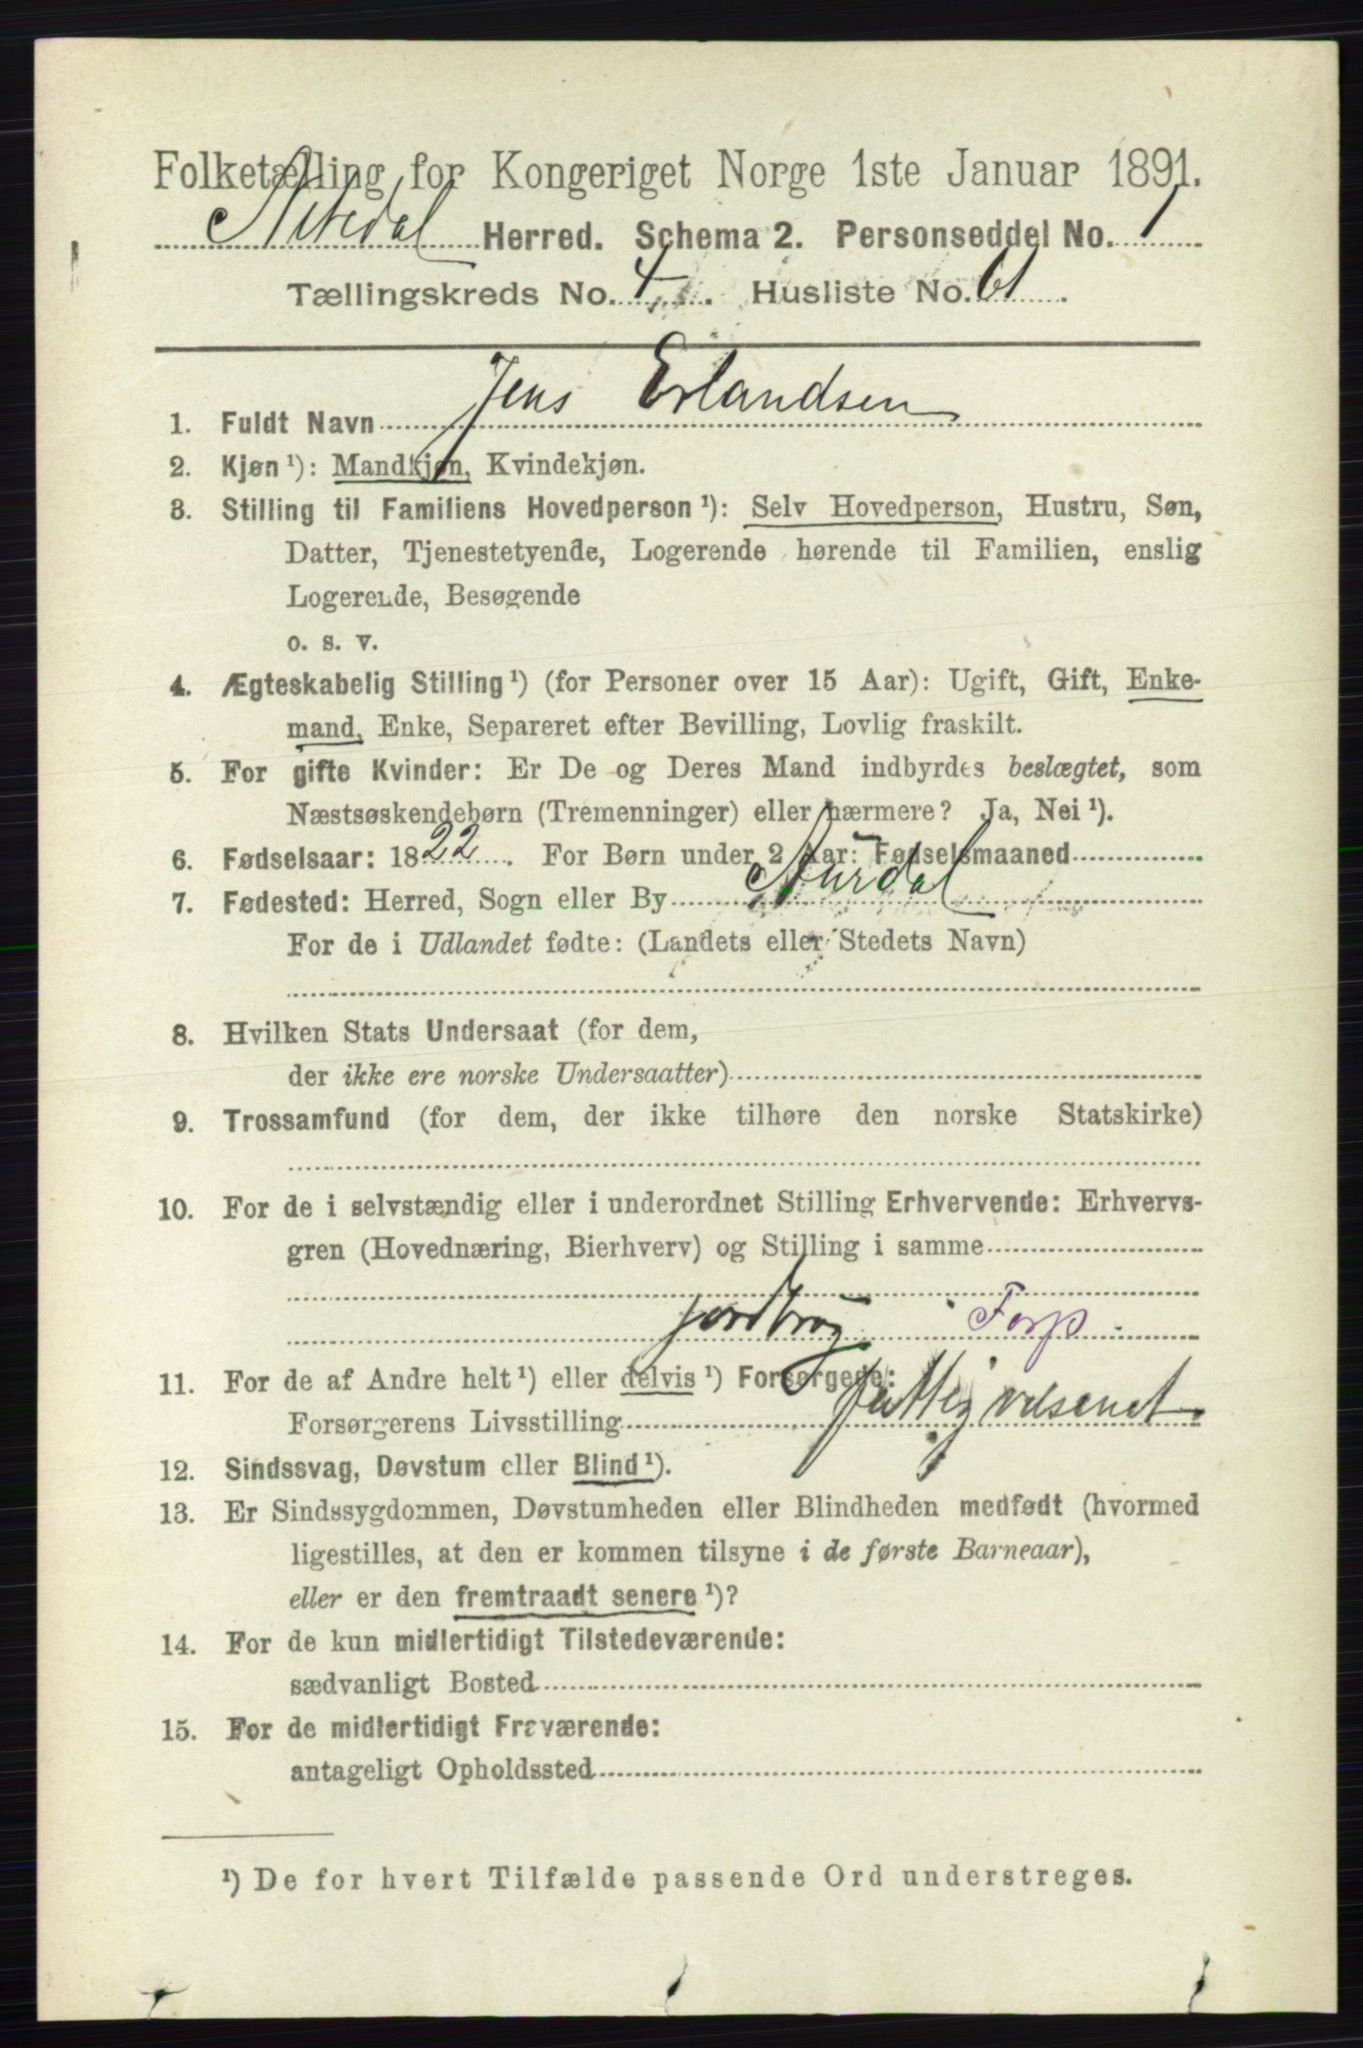 Folketælling for Kongeriget Norge 1ste Januar 1891.
Nitedal Herred. Schema 2. Personseddel No. 1
Tællingskreds No. 4. Husliste No. 61.
1. Fuldt Navn Jens Erlandsen
2. Kjøn¹): Mandkjøn, Kvindekjøn.
3. Stilling til Familiens Hovedperson¹): Selv Hovedperson, Hustru, Søn,
Datter, Tjenestetyende, Logerende hørende til Familien, enslig
Logerende, Besøgende
o. s. v.
4. Ægteskabelig Stilling¹) (for Personer over 15 Aar): Ugift, Gift, Enke-
mand, Enke, Separeret efter Bevilling, Lovlig fraskilt.
5. For gifte Kvinder: Er De og Deres Mand indbyrdes beslægtet, som
Næstsøskendebørn (Tremenninger) eller nærmere? Ja, Nei¹).
6. Fødselsaar: 1822. For Børn under 2 Aar: Fødselsmaaned
7. Fødested: Herred, Sogn eller By Aurdal
For de i Udlandet fødte: (Landets eller Stedets Navn)
8. Hvilken Stats Undersaat (for dem,
der ikke ere norske Undersaatter)
9. Trossamfund (for dem, der ikke tilhøre den norske Statskirke)
10. For de i selvstændig eller i underordnet Stilling Erhvervende: Erhvervs-
gren (Hovednæring, Bierhverv) og Stilling i samme
jordbrug Forp
11. For de af Andre helt¹) eller delvis¹) Forsørgede:
Forsørgerens Livsstilling
12. Sindssvag, Døvstum eller Blind¹).
13. Er Sindssygdommen, Døvstumheden eller Blindheden medfødt (hvormed
ligestilles, at den er kommen tilsyne i de første Barneaar),
eller er den fremtraadt senere¹)?
14. For de kun midlertidigt Tilstedeværende:
sædvanligt Bosted
15. For de midlertidigt Fraværende:
antageligt Opholdssted
¹) De for hvert Tilfælde passende Ord understreges.